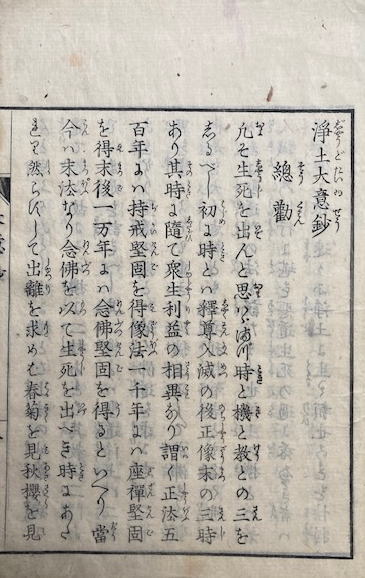 淨土大意鈔
總勸
凢そ生死を出んと思ハヾ溈川時と機と教との三を
志るべし初に時とハ釋尊入滅の後正像末の三時
あり其時に隨て衆生利益の相異なり謂く正法五
百年にハ持戒堅固を得像法一千年にハ座禪堅固
を得末後一万年にハ念佛堅固を得るといへり當
今ハ末法なり念佛を以て生死を出べき時にあた
れり然らずして出離を求めむ春菊を見秋櫻を見